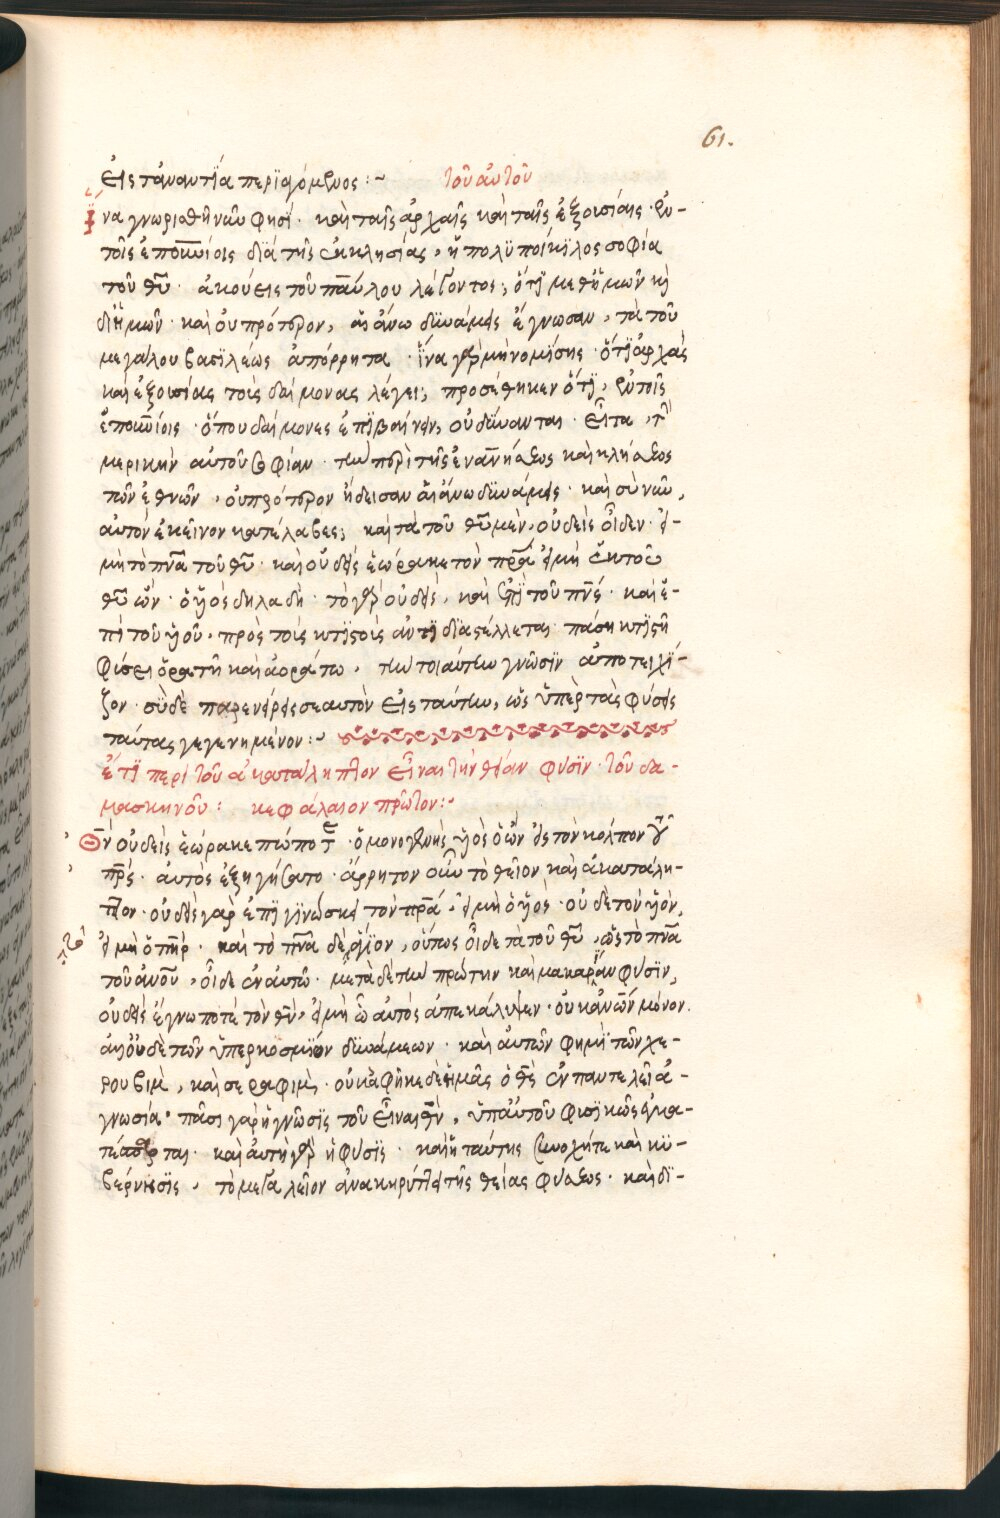 61.
εἰς τἀναντΐα περϊαγόμενος :~ τοῦ αὐτοῦ
ἵνα γνωρισθῆ νῦν φησί · καὶ ταῖς ἀρχαῖς καὶ ταῖς ἐξουσίαις · ἐν-
τοῖς ἐπουνίοις διὰ τῆς ἐκκλησίας, ἡ πολϋποίκϊλος σοφία
τοῦ θυ · ἀκούεις τοῦ παύλου λέγοντος, ὅτϊ μεθ ἡμῶν κὶ
δι ἡμῶν · καὶ οὐ πρότερον, αἱ ἄνω δϋνάμεις ἔγνωσαν, τὰ τοῦ
μεγάλου βασϊλέως ἀπόρρητα · ἵνα γὰρ μὴ νομίσης · ὅτϊ ἀρχὰς
καὶ ἐξουσίας τοὺς δαίμονας λέγει, προσέθηκεν ὅτϊ, ἐν τοῖς
ἐπουνίοις · ὅπου δαίμονες ἐπϊβαίνειν, οὐ δύνανται · εἶτα, τὴ
μερικὴν αὐτοῦ σοφίαν · τὴν περὶ τῆς ἐναννήσεως καὶ κλήσεως
τῶν ἐθνῶν, οὐ πρότερον ἤδεισαν αἱ ἄνω δϋνάμεις · καὶ σὺ νῦν,
αὐτὸν ἐκεῖνον κατέλαβες; καὶ τὰ τοῦ θυ μὲν, οὐδεὶς οἶδεν · εἰ-
μὴ τὸ πνα τοῦ θυ · καὶ οὐδεὶς ἑώρακε τὸν πρα εἰ μὴ ἐκ τοῦ
θυ ὢν · ὁ ὑϊὸς δηλαδὴ · τὸ γὰρ οὐδεὶς, καὶ ἐπὶ τοῦ πνς · καὶ ἐ-
πὶ τοῦ ὑϊοῦ · πρὸς τοὺς κτιστοὺς ἀντϊδιαστέλλεται πάση κτιστῆ
φύσει ὁρατῆ καὶ ἀοράτω, τὴν τοιαύτην γνῶσϊν ἀποτειχί-
ζον · σϋ δὲ παρενείρεις σεαυτὸν εἰς ταύτην, ὡς ὑπὲρ τὰς φύσεις
ταύτας γεγενημένον :~
ἔτϊ περὶ τοῦ ἀκατάληπτον εἶναι τὴν θείαν φύσϊν · τοῦ δα-
μασκηνοῦ : κεφάλαιον πρῶτον :~
Θν οὐδεὶς ἑώρακε πώποτε · ὁ μονογενὴς ὑϊὸς ὁ ὢν εἰς τὸν κόλπον τοῦ
πρς · αὐτὸς ἐξηγήσατο · ἄρρητον οὖν τὸ θεῖον καὶ ἀκατάλη-
πτον · οὐδεὶς γὰρ ἐπϊγϊνώσκει τὸν πρα · εἰ μὴ ὁ ὑϊὸς · οὐδὲ τὸν ὑϊὸν,
εἰ μὴ ὁ πηρ · καὶ τὸ πνα δὲ ἅγϊον, οὕτως οἶδε τὰ τοῦ θυ, ὡς τὸ πνα
τοῦ ἀνου, οἶδε ἐν αὐτῶ · μετὰ δὲ τὴν πρώτην καὶ μακαρίαν φύσϊν,
οὐδεὶς ἔγνω ποτὲ τὸν θν, εἰ μὴ ὧ αὐτὸς ἀπεκάλυψεν · οὐκ ἀνων μόνον.
ἀλλ οὐδὲ τῶν ὑπερκοσμίων δϋνάμεων · καὶ αὐτῶν φημὶ τῶν χε-
ρουβιμ, καὶ σεραφιμ · οὐκ ἀφῆκε δὲ ἡμᾶς ὁ θς ἐν παντελεῖ ἀ-
γνωσία · πᾶσι γὰρ ἡ γνῶσϊς τοῦ εἶναι θν, ὑπ αὐτοῦ φυσϊκῶς ἐγκα-
τέσπαρται · καὶ αὐτὴ γὰρ ἡ φύσϊς · καὶ ἡ ταύτης συνοχή τε καὶ κϋ-
βέρνησϊς, τὸ μεγαλεῖον ἀνακηρύττει τῆς θείας φύσεως · καὶ δϊ-